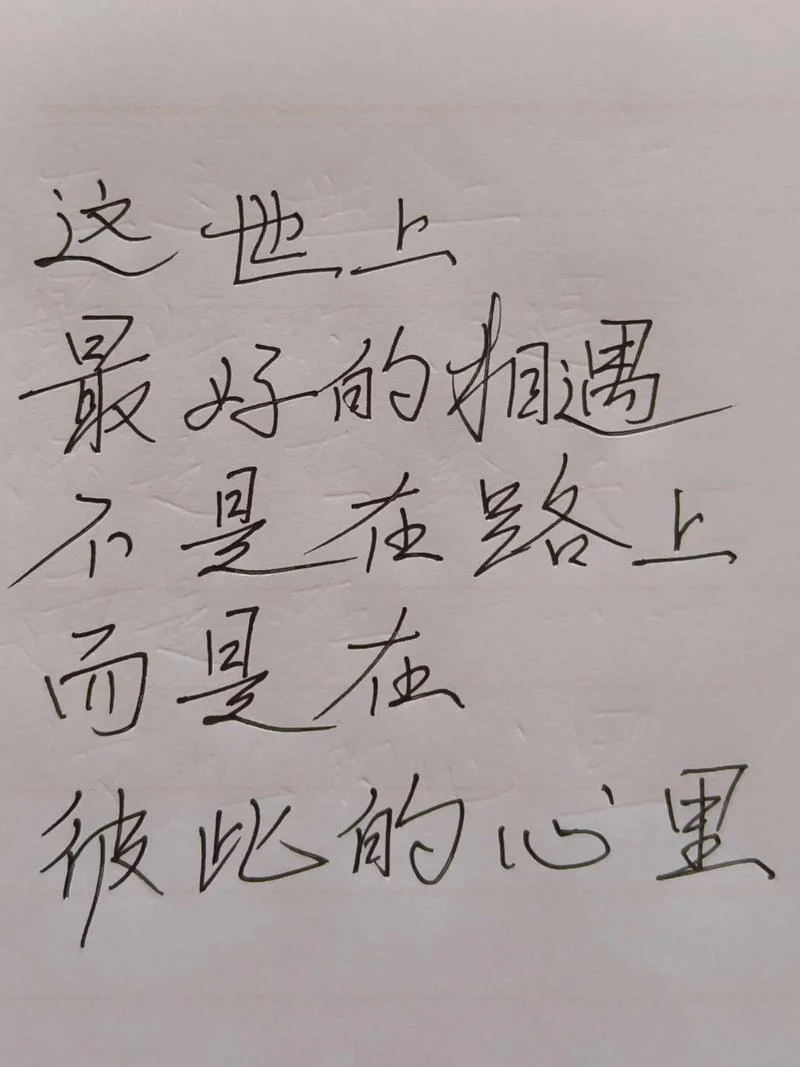 这世上
最好的相遇
不是在路上
而是在
彼此的心里